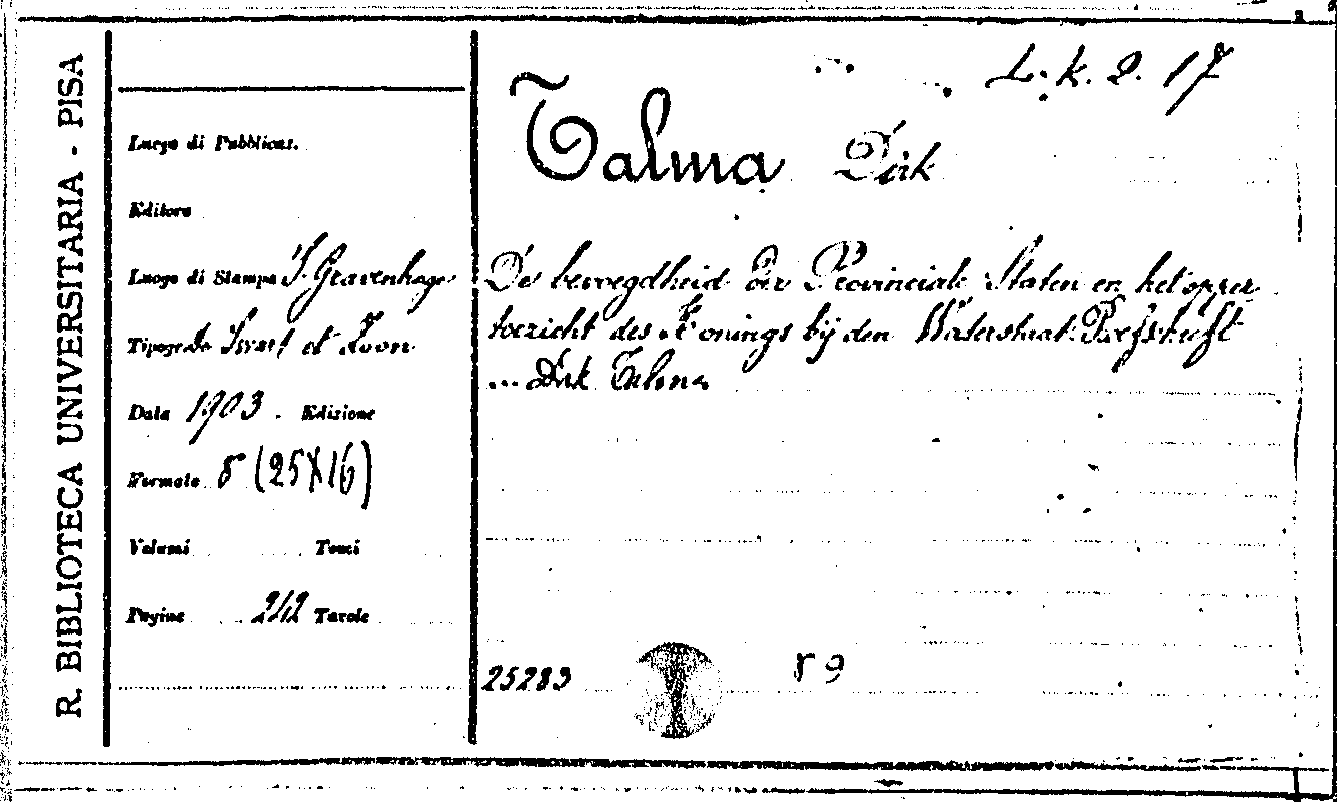 R. BIBLIOTECA UNIVERSITARIA - PISA
L. k. 2. 17
Talma Dirk
Luogo di Pubblicaz.
Editore
Luogo di Stampa S. Gravenhage
Tipografo Swart et Zoon
Data 1903. Edizione
Formato 8 (25X16)
Volumi Tomi
Pagine 212 Tavole
De bevoegdheid der Provinciale Staten en het opper
toezicht des Konings bij den Waterstaat. Proefschrift
... Dirk Talma
25283
8 9